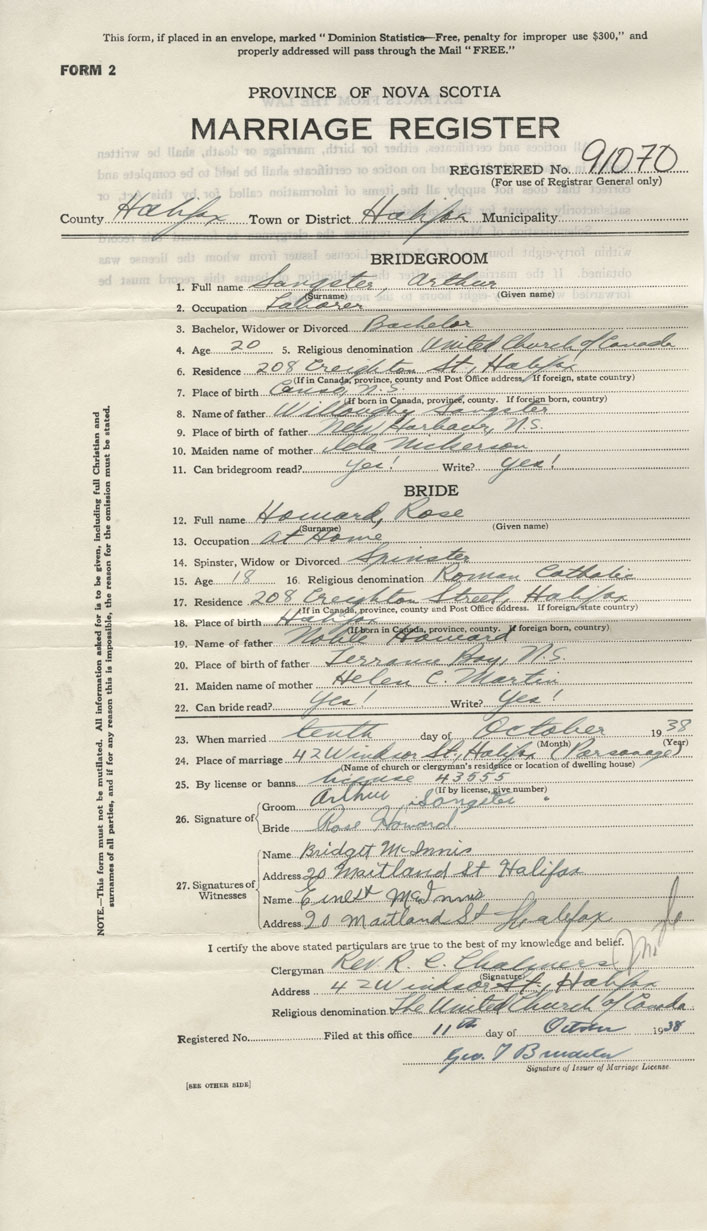 This form, if placed in an envelope, marked "Dominion Statistics—Free, penalty for improper use $300," and
properly addressed will pass through the Mail "FREE."
FORM 2
PROVINCE OF NOVA SCOTIA
MARRIAGE REGISTER
REGISTERED No. 91070
(For use of Registrar General only)
County Halifax Town or District Halifax Municipality
BRIDEGROOM
1. Full name Sangster, Arthur
(Surname) (Given name)
2. Occupation Laborer
3. Bachelor, Widower or Divorced Bachelor
4. Age 20 5. Religious denomination United Church of Canada
6. Residence 208 Creighton St, Halifax
(If in Canada, province, county and Post Office address. If foreign, state county)
7. Place of birth Canso, N.S.
(If born in Canada, province, county. If foreign born, county)
8. Name of father Willoughby Sangster
9. Place of father New Harbour, N.S.
10. Maiden name of mother Iola Nickerson
11. Can bridegroom read? Yes! Write? Yes!
BRIDE
12. Full name Howard, Rose
(Surname) (Given name)
13. Occupation At Home
14. Spinster, Widow or Divorced Spinster
15. Age 18 16. Religious denomination Roman Catholic
17. Residence 208 Creighton Street, Halifax
(If in Canada, province, county and Post Office address. If foreign, state county)
18. Place of birth Halifax
(If born in Canada, province, county. If foreign born, county)
19. Name of father Howard
20. Place of birth of father Bay, N.S.
21. Maiden name of mother Helen C. Martin
22. Can bride read? Yes! Write? Yes!
23. When married tenth day of October 1938
(Month) (Year)
24. Place of marriage 42 Windsor St, Halifax (Parsonage)
(Name of church or clergyman's residence or location of dwelling house)
25. By license or banns license 43555
(If by license, give number)
26. Signature of Groom Arthur Sangster
Bride Rose Howard
27. Signatures of Witnesses Name Bridget McInnis
Address 20 Maitland St Halifax
Name Ernest McInnis
Address 20 Maitland St Halifax
I certify the above stated particulars are true to the best of my knowledge and belief.
Clergyman Rev R. C. Chalmers
(Signature)
Address 42 Windsor St, Halifax
Religious denomination The United Church of Canada
Registered No. Filed at this office 11th day of October 1938
Geo. T
Signature of Issuer of Marriage License
[SEE OTHER SIDE]
NOTE.—This form must not be mutilated. All information asked for is to be given, including full Christian and
surnames of all parties, and if for any reason this is impossible, the reason for the omission must be stated.